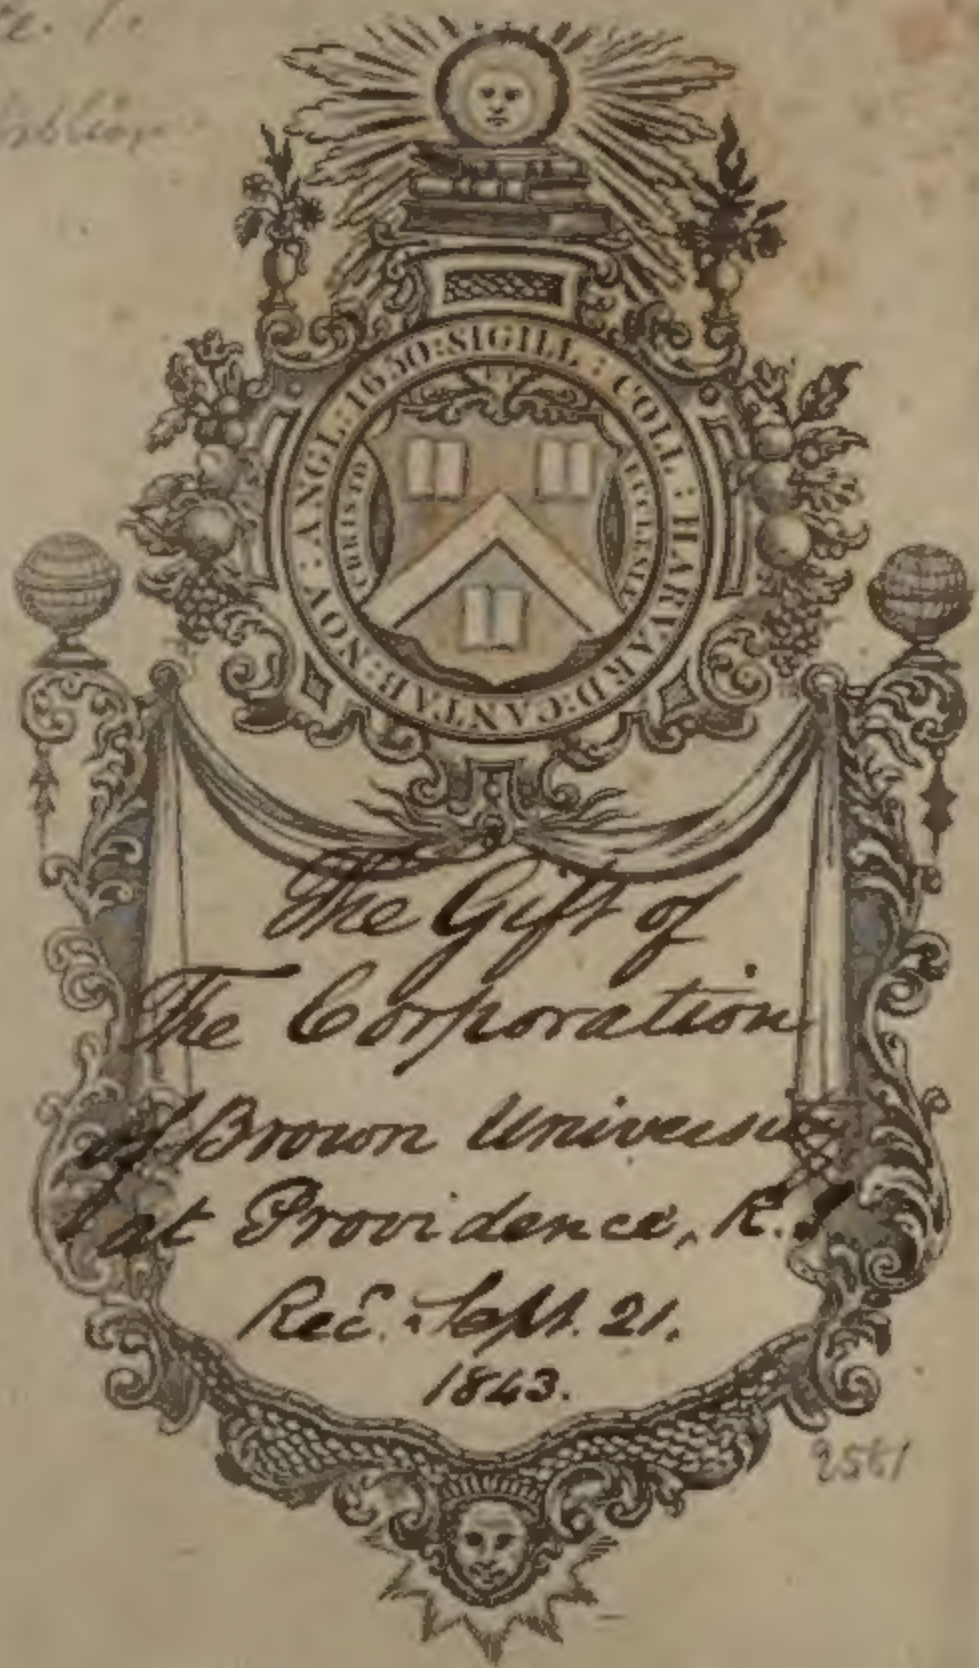 SIGILL : COLL : HARVARD : CANTAB : NOV : ANGL : 1650 :
CHRISTO
ECCLESIÆ
The Gift of
The Corporation
of Brown University
at Providence, R.I.
Rec. Sept. 21.
1843.